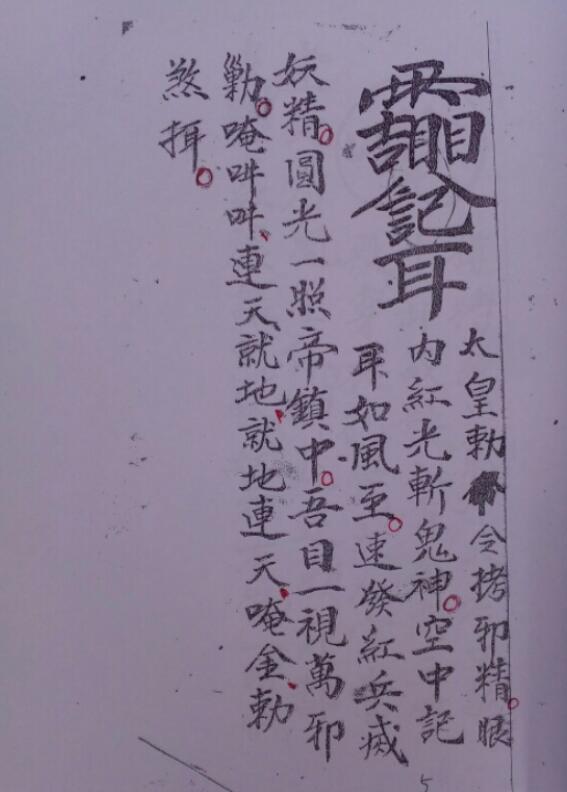 耳
太皇勅令拷邪精。眼
内紅光斬鬼神。空中記
耳如風至。速發紅兵滅
妖精。圓光一照帝鎮中。吾目一視萬邪
剿。唵吽吽、連天、就地、就地連天、唵金勅
煞
5